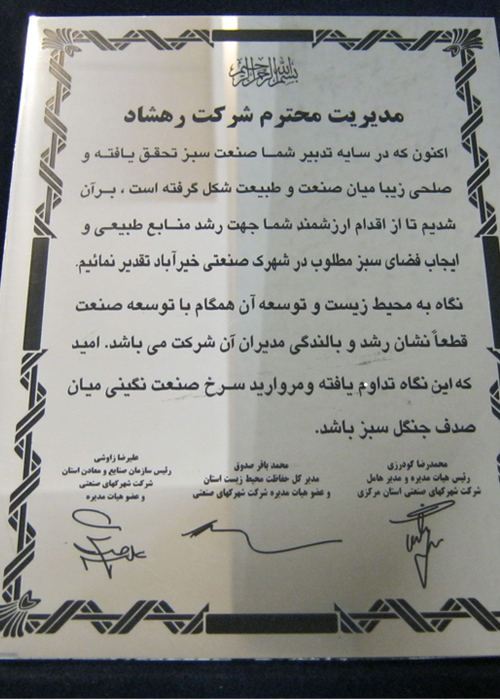 بسم الله الرحمن الرحیم
مدیریت محترم شرکت رهشاد
اکنون که در سایه تدبیر شما صنعت سبز تحقق یافته و
صلحی زیبا میان صنعت و طبیعت شکل گرفته است ، برآن
شدیم تا از اقدام ارزشمند شما جهت رشد منابع طبیعی و
ایجاب فضای سبز مطلوب در شهرک صنعتی خیرآباد تقدیر نمائیم.
نگاه به محیط زیست و توسعه آن همگام با توسعه صنعت
قطعاً نشان رشد و بالندگی مدیران آن شرکت می باشد. امید
که این نگاه تداوم یافته ومروارید سرخ صنعت نگینی میان
صدف جنگل سبز باشد.
محمدرضا گودرزی
رئیس هیات مدیره و مدیر عامل
شرکت شهرکهای صنعتی استان مرکزی
محمد باقر صدوق
مدیر کل حفاظت محیط زیست استان
و عضو هیات مدیره شرکت شهرکهای صنعتی
علیرضا زاوشی
رئیس سازمان صنایع و معادن استان
شرکت شهرکهای صنعتی
و عضو هیات مدیره